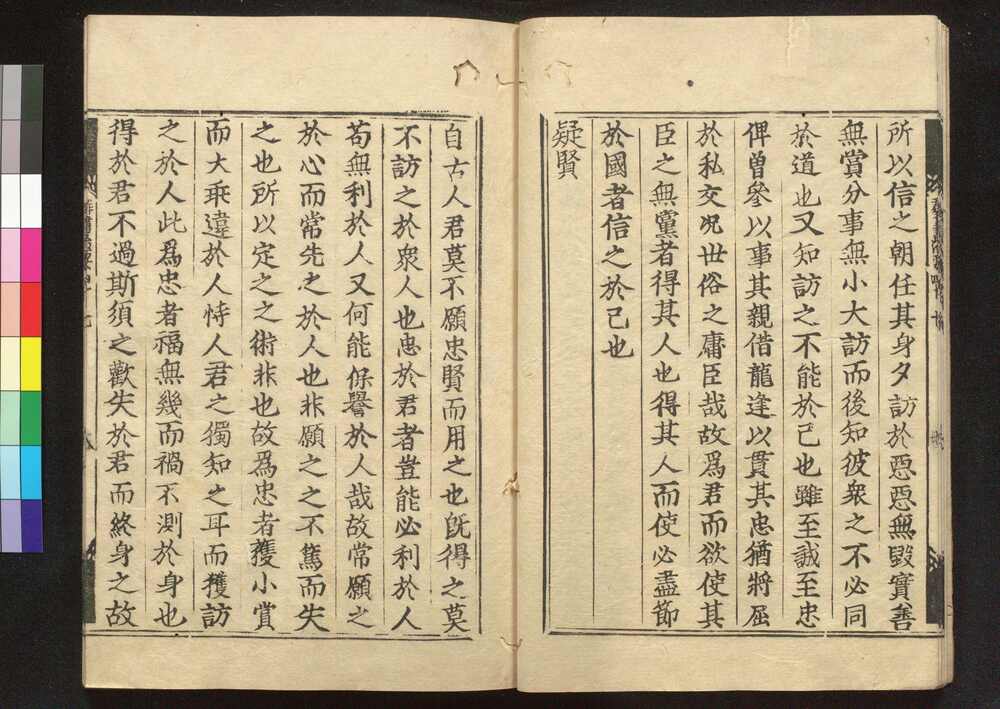 所以信之朝任其身夕訪於惡惡無毀實善
無賞分事無小大訪而後知彼衆之不必同
於道也又知訪之不能於己也雖至誠至忠
俾曽參以事其親借龍逢以貫其忠猶將屈
於私交况世俗之庸臣哉故爲君而欲使其
臣之無黨者得其人也得其人而使必盡節
於國者信之於己也
疑賢
自古人君莫不願忠賢而用之也既得之莫
不訪之於衆人也忠於君者豈能必利於人
苟無利於人又何能保譽於人哉故常願之
於心而常先之於人也非願之之不篤而失
之也所以定之之術非也故爲忠者獲小賞
而大乖違於人恃人君之獨知之耳而獲訪
之於人此爲忠者福無幾而禍不測於身也
得於君不過斯須之歡失於君而終身之故